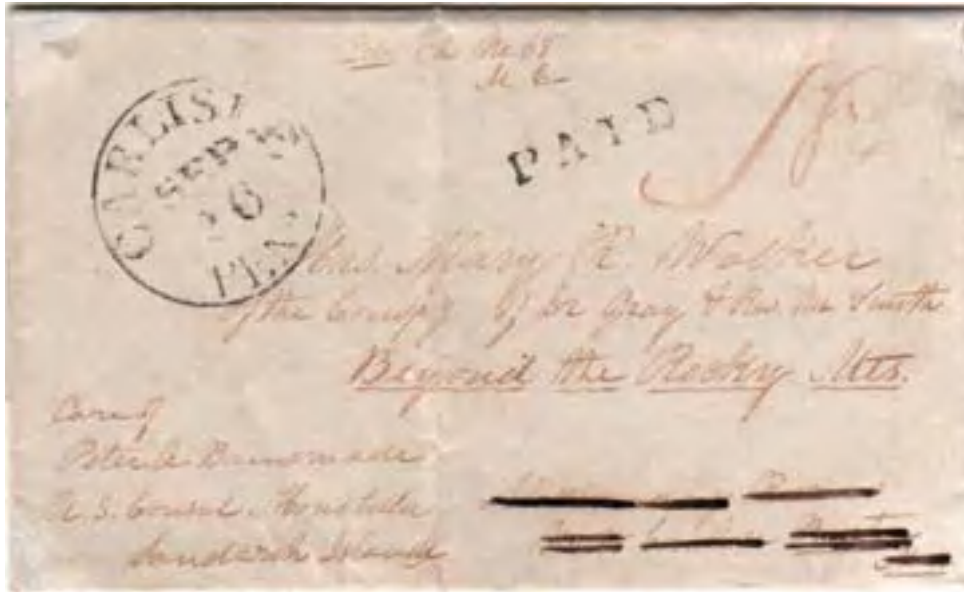 No 68
PAID
CARLISLE
SEP
PEN.
Mrs. Mary R. Walker
of the Compy of Dr Gray & Rev. Mr Smith
Beyond the Rocky Mts.
Care of
Peter A. Brinsmade
U.S. Consul Honolulu
Sandwich Islands